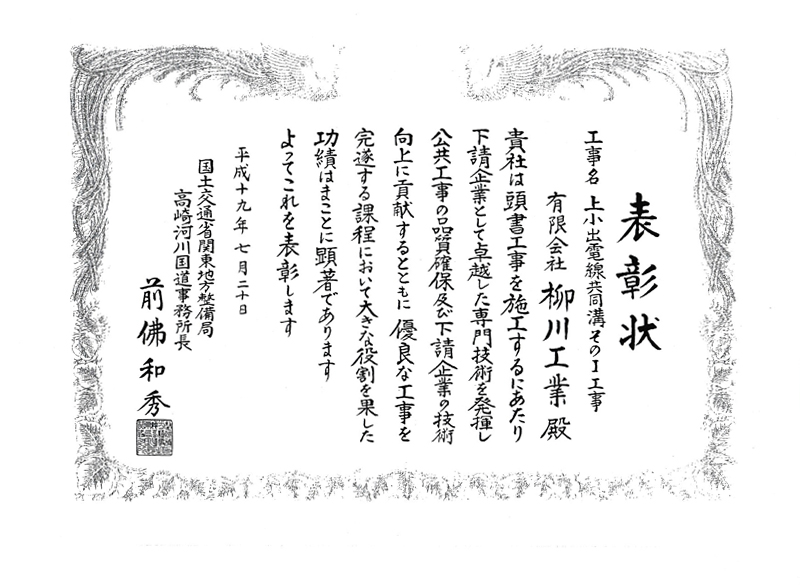 表彰状
工事名 上小出電線共同溝その1工事
有限会社 柳川工業 殿
貴社は頭書工事を施工するにあたり
下請企業として卓越した専門技術を発揮し
公共工事の品質確保及び下請企業の技術
向上に貢献するとともに優良な工事を
完遂する課程において大きな役割を果した
功績はまことに顕著であります
よってこれを表彰します
平成十九年七月二十日
国土交通省関東地方整備局
高崎河川国道事務所長
前佛和秀